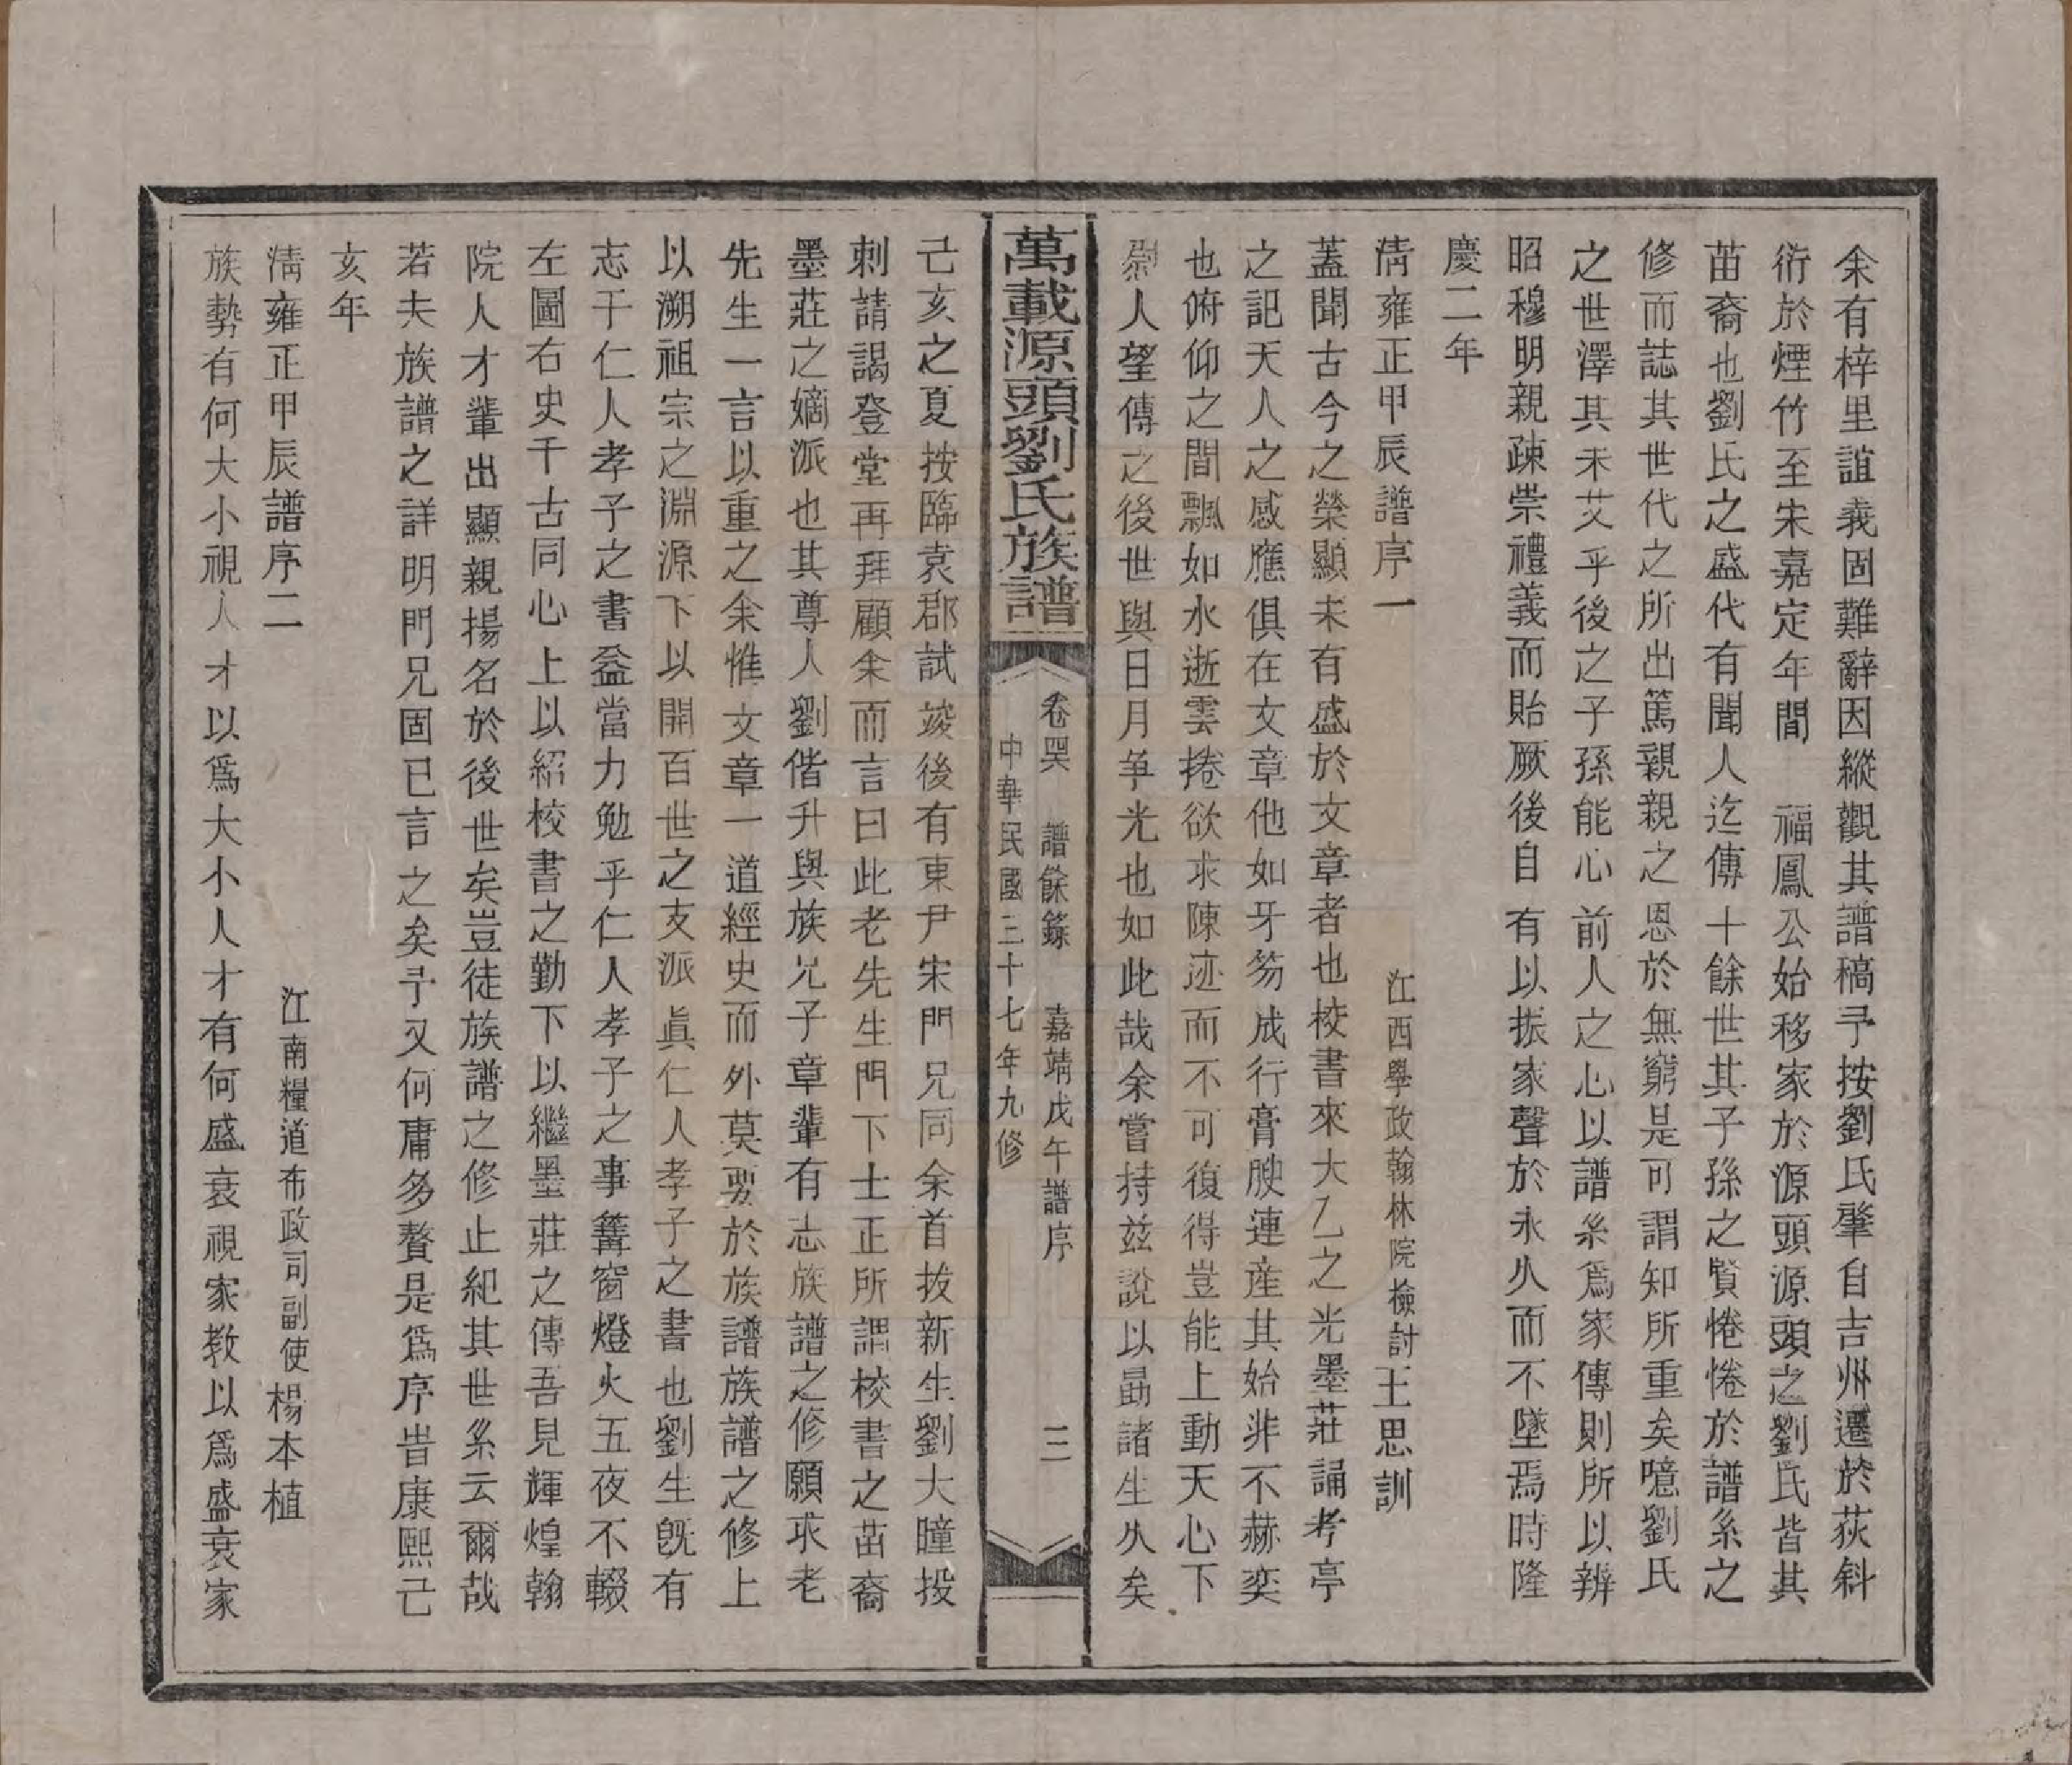 余有梓里誼義固難辭因縱觀其譜稿予按劉氏肇自吉州遷於荻斜
衍於煙竹至宋嘉定年間　福鳳公始移家於源頭源頭之劉氏皆其
苗裔也劉氏之盛代有聞人迄傳十餘世其子孫之賢惓惓於譜系之
修而誌其世代之所出篤親親之恩於無窮是可謂知所重矣噫劉氏
之世澤其未艾乎後之子孫能心前人之心以譜系爲家傳則所以辨
昭穆明親疎崇禮義而貽厥後自有以振家聲於永久而不墜焉時隆
慶二年
清雍正甲辰譜序一　江西學政翰林院檢討王思訓
蓋聞古今之榮顯未有盛於文章者也校書來大乙之光墨莊誦考亭
之記天人之感應俱在文章他如牙笏成行膏腴連産其始非不赫奕
也俯仰之間飄如水逝雲捲欲求陳迹而不可復得豈能上動天心下
尉人望傳之後世與日月争光也如此哉余嘗持玆說以勗諸生久矣
萬載源頭劉氏族譜
卷四六　譜餘錄　嘉靖戊午譜序　三
中華民國三十七年九修
己亥之夏按臨袁郡試竣後有東尹宋門兄同余首拔新生劉大瞳投
刺請謁登堂再拜顧余而言曰此老先生門下士正所謂校書之苗裔
墨莊之嫡派也其尊人劉偕升與族兄子章輩有志族譜之修願求老
先生一言以重之余惟文章一道經史而外莫要於族譜族譜之修上
以溯祖宗之淵源下以開百世之支派眞仁人孝子之書也劉生旣有
志于仁人孝子之書益當力勉乎仁人孝子之事篝窗燈火五夜不輟
左圖右史千古同心上以紹校書之勤下以繼墨莊之傳吾見輝煌翰
院人才輩出顯親揚名於後世矣豈徒族譜之修止紀其世系云爾哉
若夫族譜之詳明門兄固已言之矣予又何庸多贅是爲序旹康熙己
亥年
清雍正甲辰譜序二　江南糧道布政司副使楊本植
族勢有何大小視人才以爲大小人才有何盛衰視家教以爲盛衰家